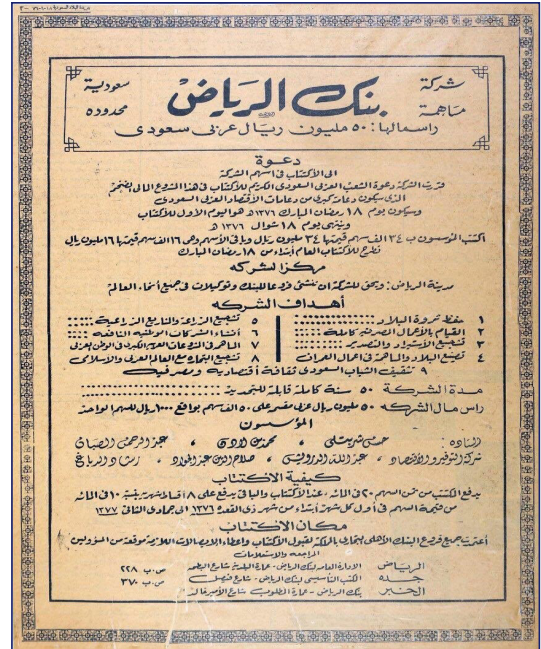 شركة سعودية
بنك الرياض
مساهمة محدوده
راسمالها: ٥٠ مليون ريال عربي سعودي
دعوة
الى الاكتتاب في اسهم الشركة
قررت الشركة دعوة الشعب العربي السعودي الكريم للاكتتاب في هذا المشروع المالي الضخم
الذي سيكون دعامة كبرى من دعامات الاقتصاد العربي السعودي
وسيكون يوم ١٨ رمضان المبارك ١٣٧٦ هـ هو اليوم الاول للاكتتاب
وينتهي يوم ١٨ شوال ١٣٧٦ هـ
اكتتب المؤسسون ب ٣٤ الف سهم قيمتها ٣٤ مليون ريال وباقي الاسهم وهي ١٦ الف سهم قيمتها ١٦ مليون ريال
تطرح للاكتتاب العام ابتداء من ١٨ رمضان المبارك
مركز الشركه
مدينة الرياض: ويحق للشركة ان تنشئ فروعا للبنك وتوكيلات في جميع انحاء العالم
أهداف الشركه
١ حفظ ثروة البلاد
٥ تشجيع الزراعة والمشاريع الزراعية
٢ القيام بالاعمال المصرفية كاملة
٦ انشاء الشركات الوطنيه النافعه
٣ تشجيع الاستيراد والتصدير
٧ المساهمه في المشروعات العربيه الكبرى في الوطن العربي
٤ تصنيع البلاد والمساهمه في اعمال العمران
٨ تشجيع التجاره مع العالم العربي والاسلامي
٩ تثقيف الشباب السعودي ثقافة اقتصادية ومصرفيه
مدة الشركة ٥٠ سنة كاملة قابلة للتجديد
راس مال الشركه ٥٠ مليون ريال عربي مقسم على ٥٠ الف سهم بواقع ١٠٠٠ ريال للسهم الواحد
المؤسسون
الساده: حسن شربتلي، محمد بن لادن، عبد الرحمن الصبان
شركة التوفير والاقتصاد، عبد الله الدرويش، صلاح الدين عبد الجواد، رشاد الدباغ
كيفية الاكتتاب
يدفع المكتتب من ثمن السهم ٢٠ في المائه، عند الاكتتاب والباقي يدفع على ٨ اقساط شهريه بنسبة ١٠ في المائه
من قيمة السهم في اول كل شهر ابتداء من شهر ذي القعده ١٣٧٦ الى جمادى الثاني ١٣٧٧
مكان الاكتتاب
اعتمدت جميع فروع البنك الاهلي التجاري بالمملكة لقبول الاكتتاب واعطاء الايصالات اللازمة موقعة من المسؤولين
المراجعه والاستعلامات
الرياض الادارة العامه لبنك الرياض - عمارة البلدية شارع البطحا ص.ب ٢٢٨
جده المكتب التاسيسي لبنك الرياض - شارع فيصل ص.ب ٣٧٠
الخبر بنك الرياض - عمارة المطلوب شارع الامير خالد